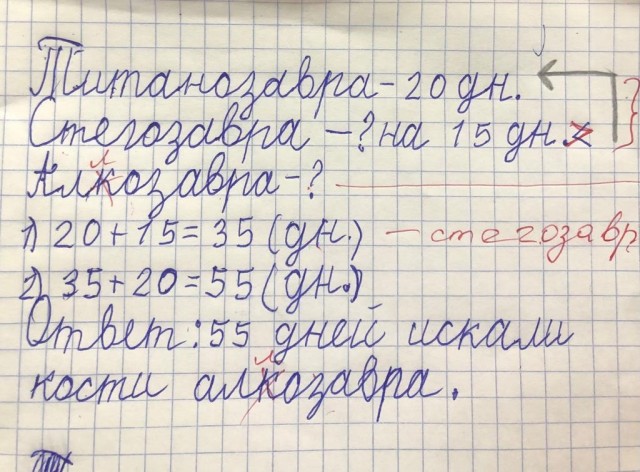 Титанозавра - 20 дн.
Стегозавра - ? на 15 дн. <
Алкозавра - ?
1) 20 + 15 = 35 (дн.) - стегозавр
2) 35 + 20 = 55 (дн.)
Ответ: 55 дней искали
кости алкозавра.